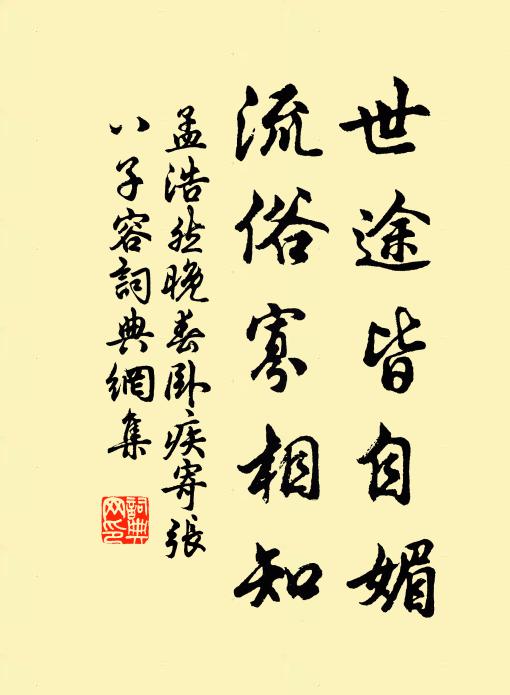 世途皆自媚
流俗寡相知
孟浩然晚春卧疾寄張
八子容詞典網集
詞典
网印